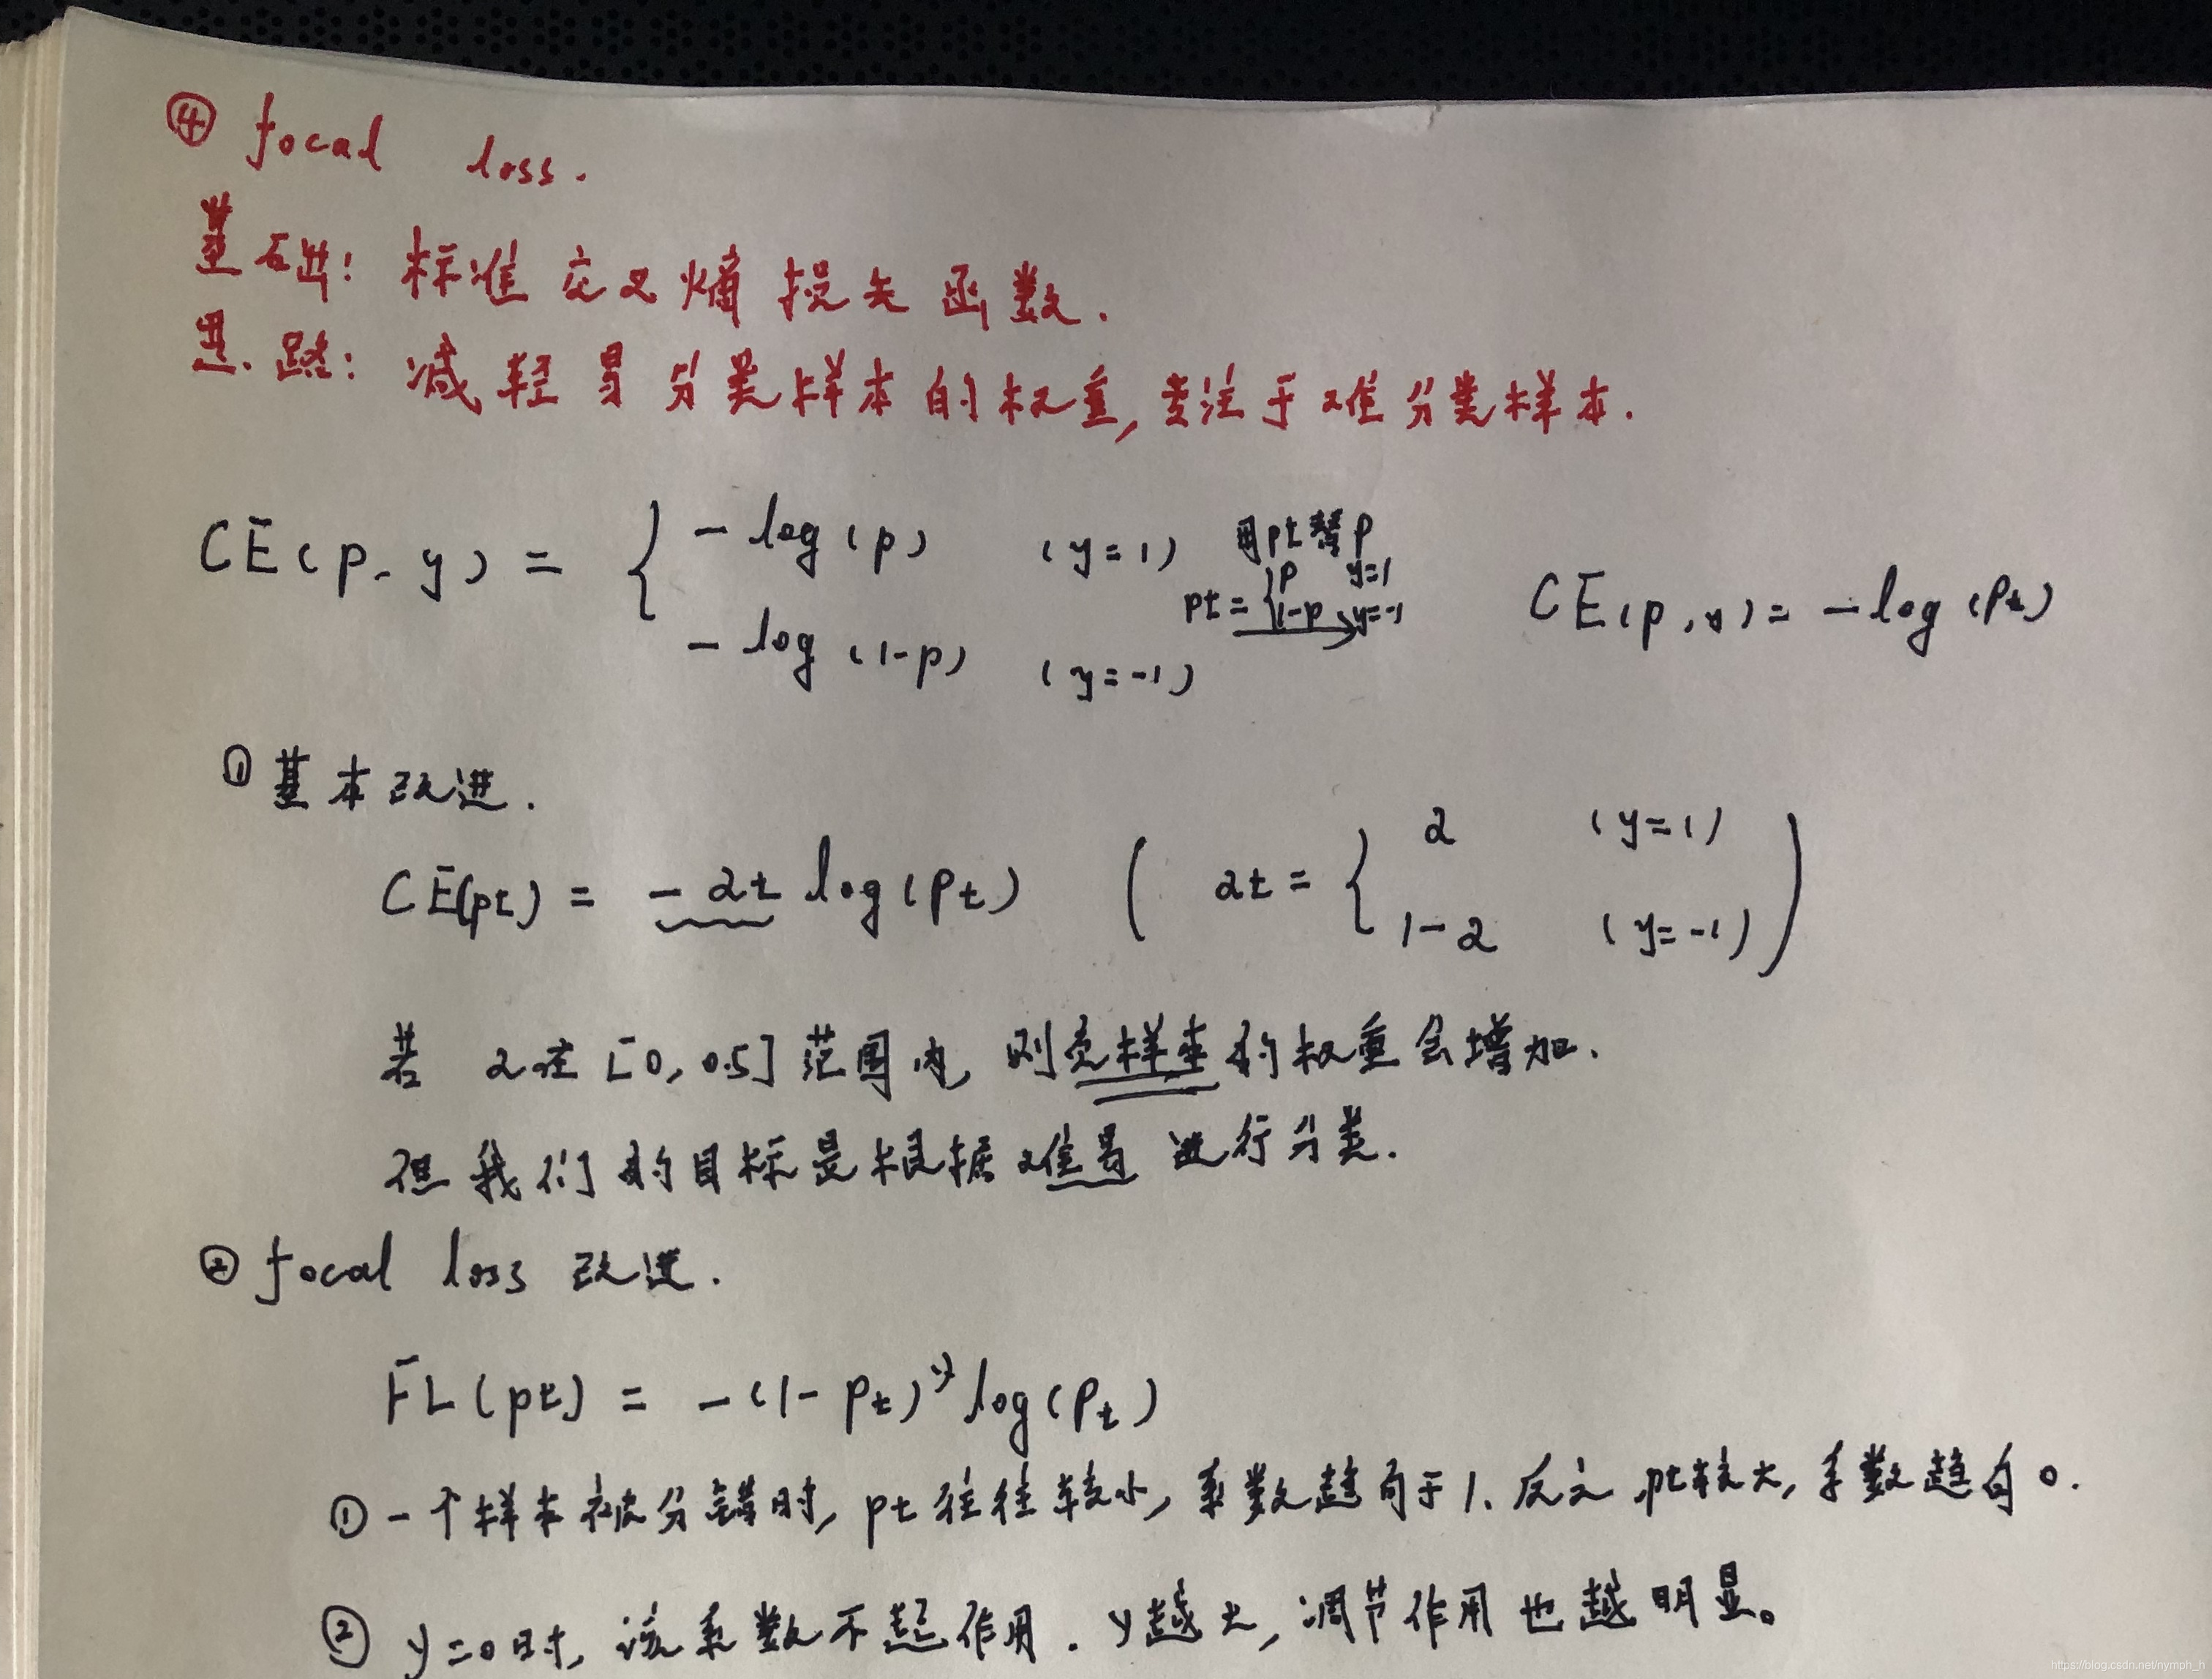 ④ focal loss.
基础: 标准交叉熵损失函数.
思路: 减轻易分类样本的权重, 专注于难分类样本.
CE(p, y) = { -log(p) (y=1)
-log(1-p) (y=-1)
用pt替p
pt = { p y=1
1-p, y=-1
CE(p, y) = -log(pt)
① 基本改进.
CE(pt) = -αt log(pt) ( αt = { α (y=1)
1-α (y=-1) )
若 α在[0, 0.5]范围内, 则负样本的权重会增加.
但我们的目标是根据难易进行分类.
② focal loss 改进.
FL(pt) = -(1-pt)^γ log(pt)
① 一个样本被分错时, pt往往较小, 系数趋向于1. 反之, pt较大, 系数趋向0.
② γ=0时, 该系数不起作用. γ越大, 调节作用也越明显。
https://blog.csdn.net/nymph_h